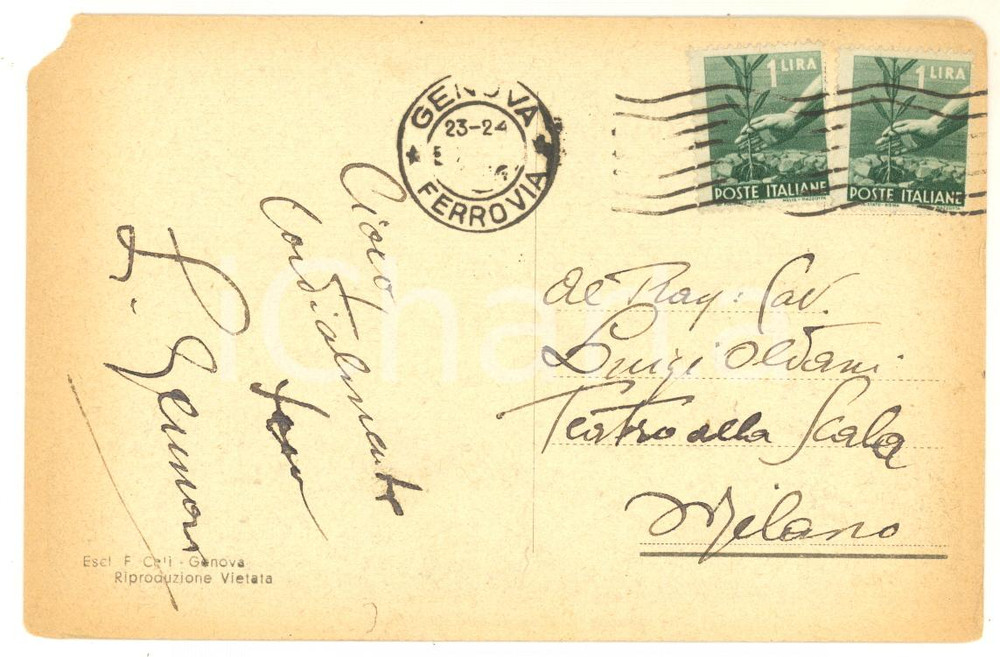 GENOVA
23-24
FERROVIA
1 LIRA
POSTE ITALIANE
1 LIRA
POSTE ITALIANE
Cordialmente
Al Rag: Cav.
Luigi Oldani
Teatro alla Scala
Milano
Escl. F. Celi - Genova
Riproduzione Vietata